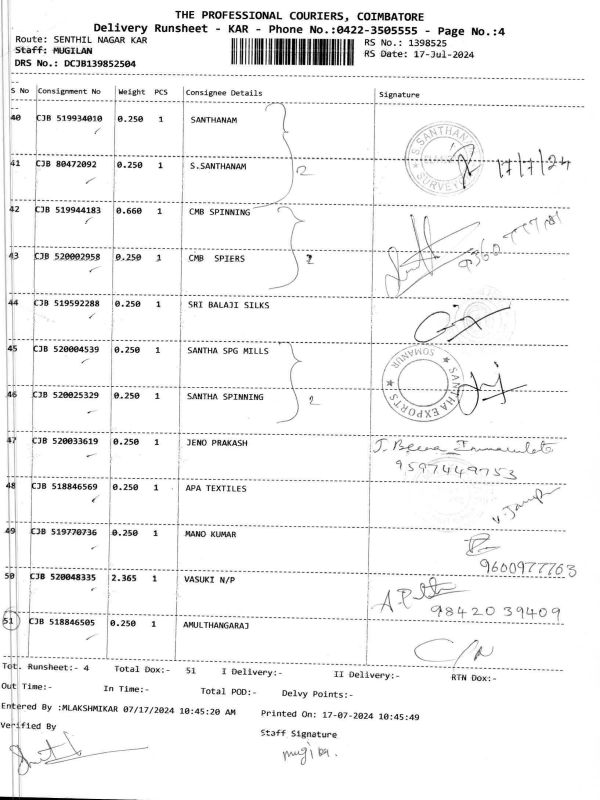 THE PROFESSIONAL COURIERS, COIMBATORE
Delivery Runsheet - KAR - Phone No.:0422-3505555 - Page No.:4
Route: SENTHIL NAGAR KAR
RS No.: 1398525
Staff: MUGILAN
RS Date: 17-Jul-2024
DRS No.: DCJB139852504
S No Consignment No Weight PCS Consignee Details Signature
40 CJB 519934010 0.250 1 SANTHANAM
S.SANTHAN
SURVEY
17/7/24
41 CJB 80472092 0.250 1 S.SANTHANAM 2
42 CJB 519944183 0.660 1 CMB SPINNING
43 CJB 520002958 0.250 1 CMB SPIERS 2
44 CJB 519592288 0.250 1 SRI BALAJI SILKS
45 CJB 520004539 0.250 1 SANTHA SPG MILLS
SANTHA EXPORTS
SOMANUR
46 CJB 520025329 0.250 1 SANTHA SPINNING 2
47 CJB 520033619 0.250 1 JENO PRAKASH J. Beena Immaculate
9597449753
48 CJB 518846569 0.250 1 APA TEXTILES
49 CJB 519770736 0.250 1 MANO KUMAR
9600977763
50 CJB 520048335 2.365 1 VASUKI N/P
9842039409
51 CJB 518846505 0.250 1 AMULTHANGARAJ
Tot. Runsheet:- 4 Total Dox:- 51 I Delivery:- II Delivery:- RTN Dox:-
Out Time:- In Time:- Total POD:- Delvy Points:-
Entered By :MLAKSHMIKAR 07/17/2024 10:45:20 AM Printed On: 17-07-2024 10:45:49
Verified By Staff Signature